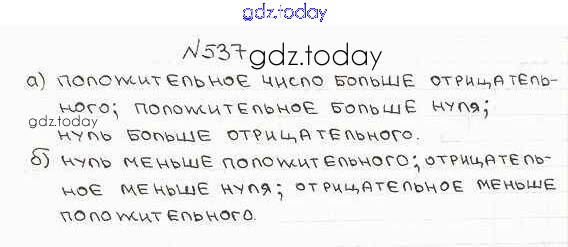 gdz.today
№537
gdz.today
а) положительное число больше отрицатель-
ного; положительное больше нуля;
gdz.today
нуль больше отрицательного.
б) нуль меньше положительного; отрицатель-
ное меньше нуля; отрицательное меньше
положительного.